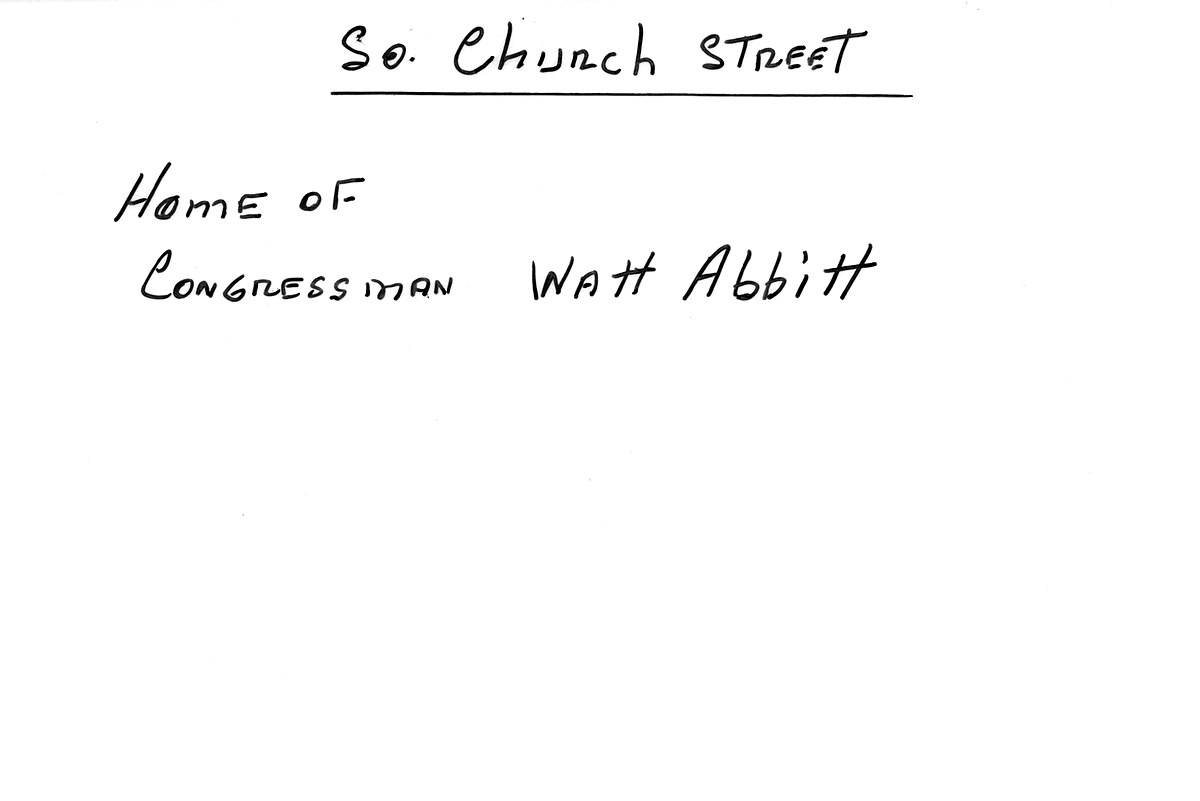 So. Church STREET
Home OF
CONGRESSMAN WAtt Abbitt